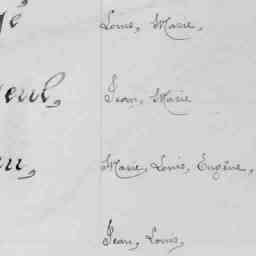 Louis, Marie,
Jean, Marie
Marie, Louis, Eugène,
Jean, Louis,